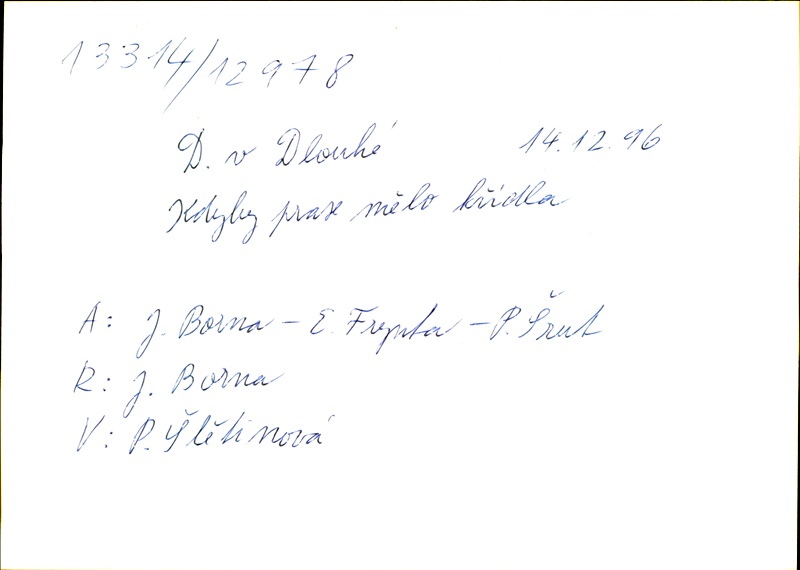 13314/12978
D. v Dlouhé 14.12.96
Kdyby prase mělo křídla
A: J. Borna - E. Frynta - P. Šrut
R: J. Borna
V: P. Štětinová